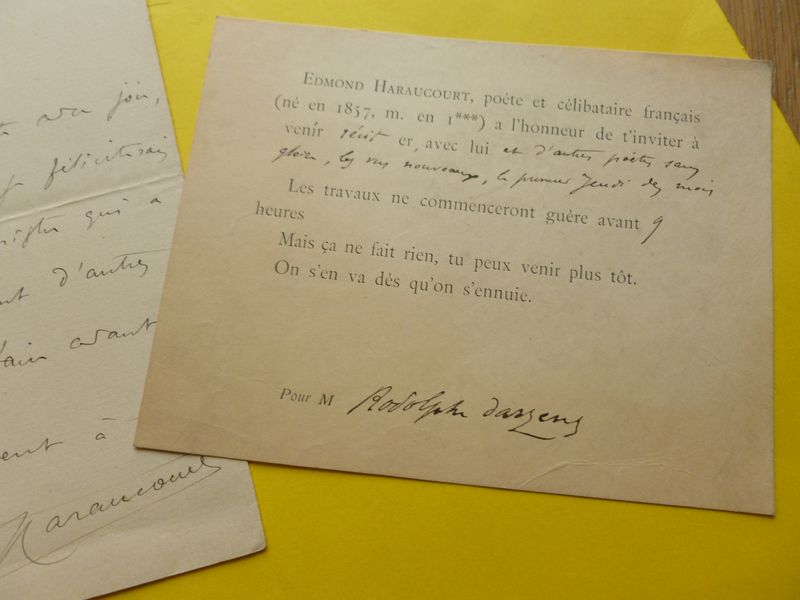 EDMOND HARAUCOURT, poète et célibataire français
(né en 1857, m. en 1***) a l'honneur de t'inviter à
venir récit er, avec lui et d'autres poètes sans
gloire, les vers nouveaux, le premier Jeudi des mois
Les travaux ne commenceront guère avant 9
heures
Mais ça ne fait rien, tu peux venir plus tôt.
On s'en va dès qu'on s'ennuie.
Pour M Rodolphe Darzens
joie,
féliciterais
qui a
d'autres
avant
à
Haraucourt